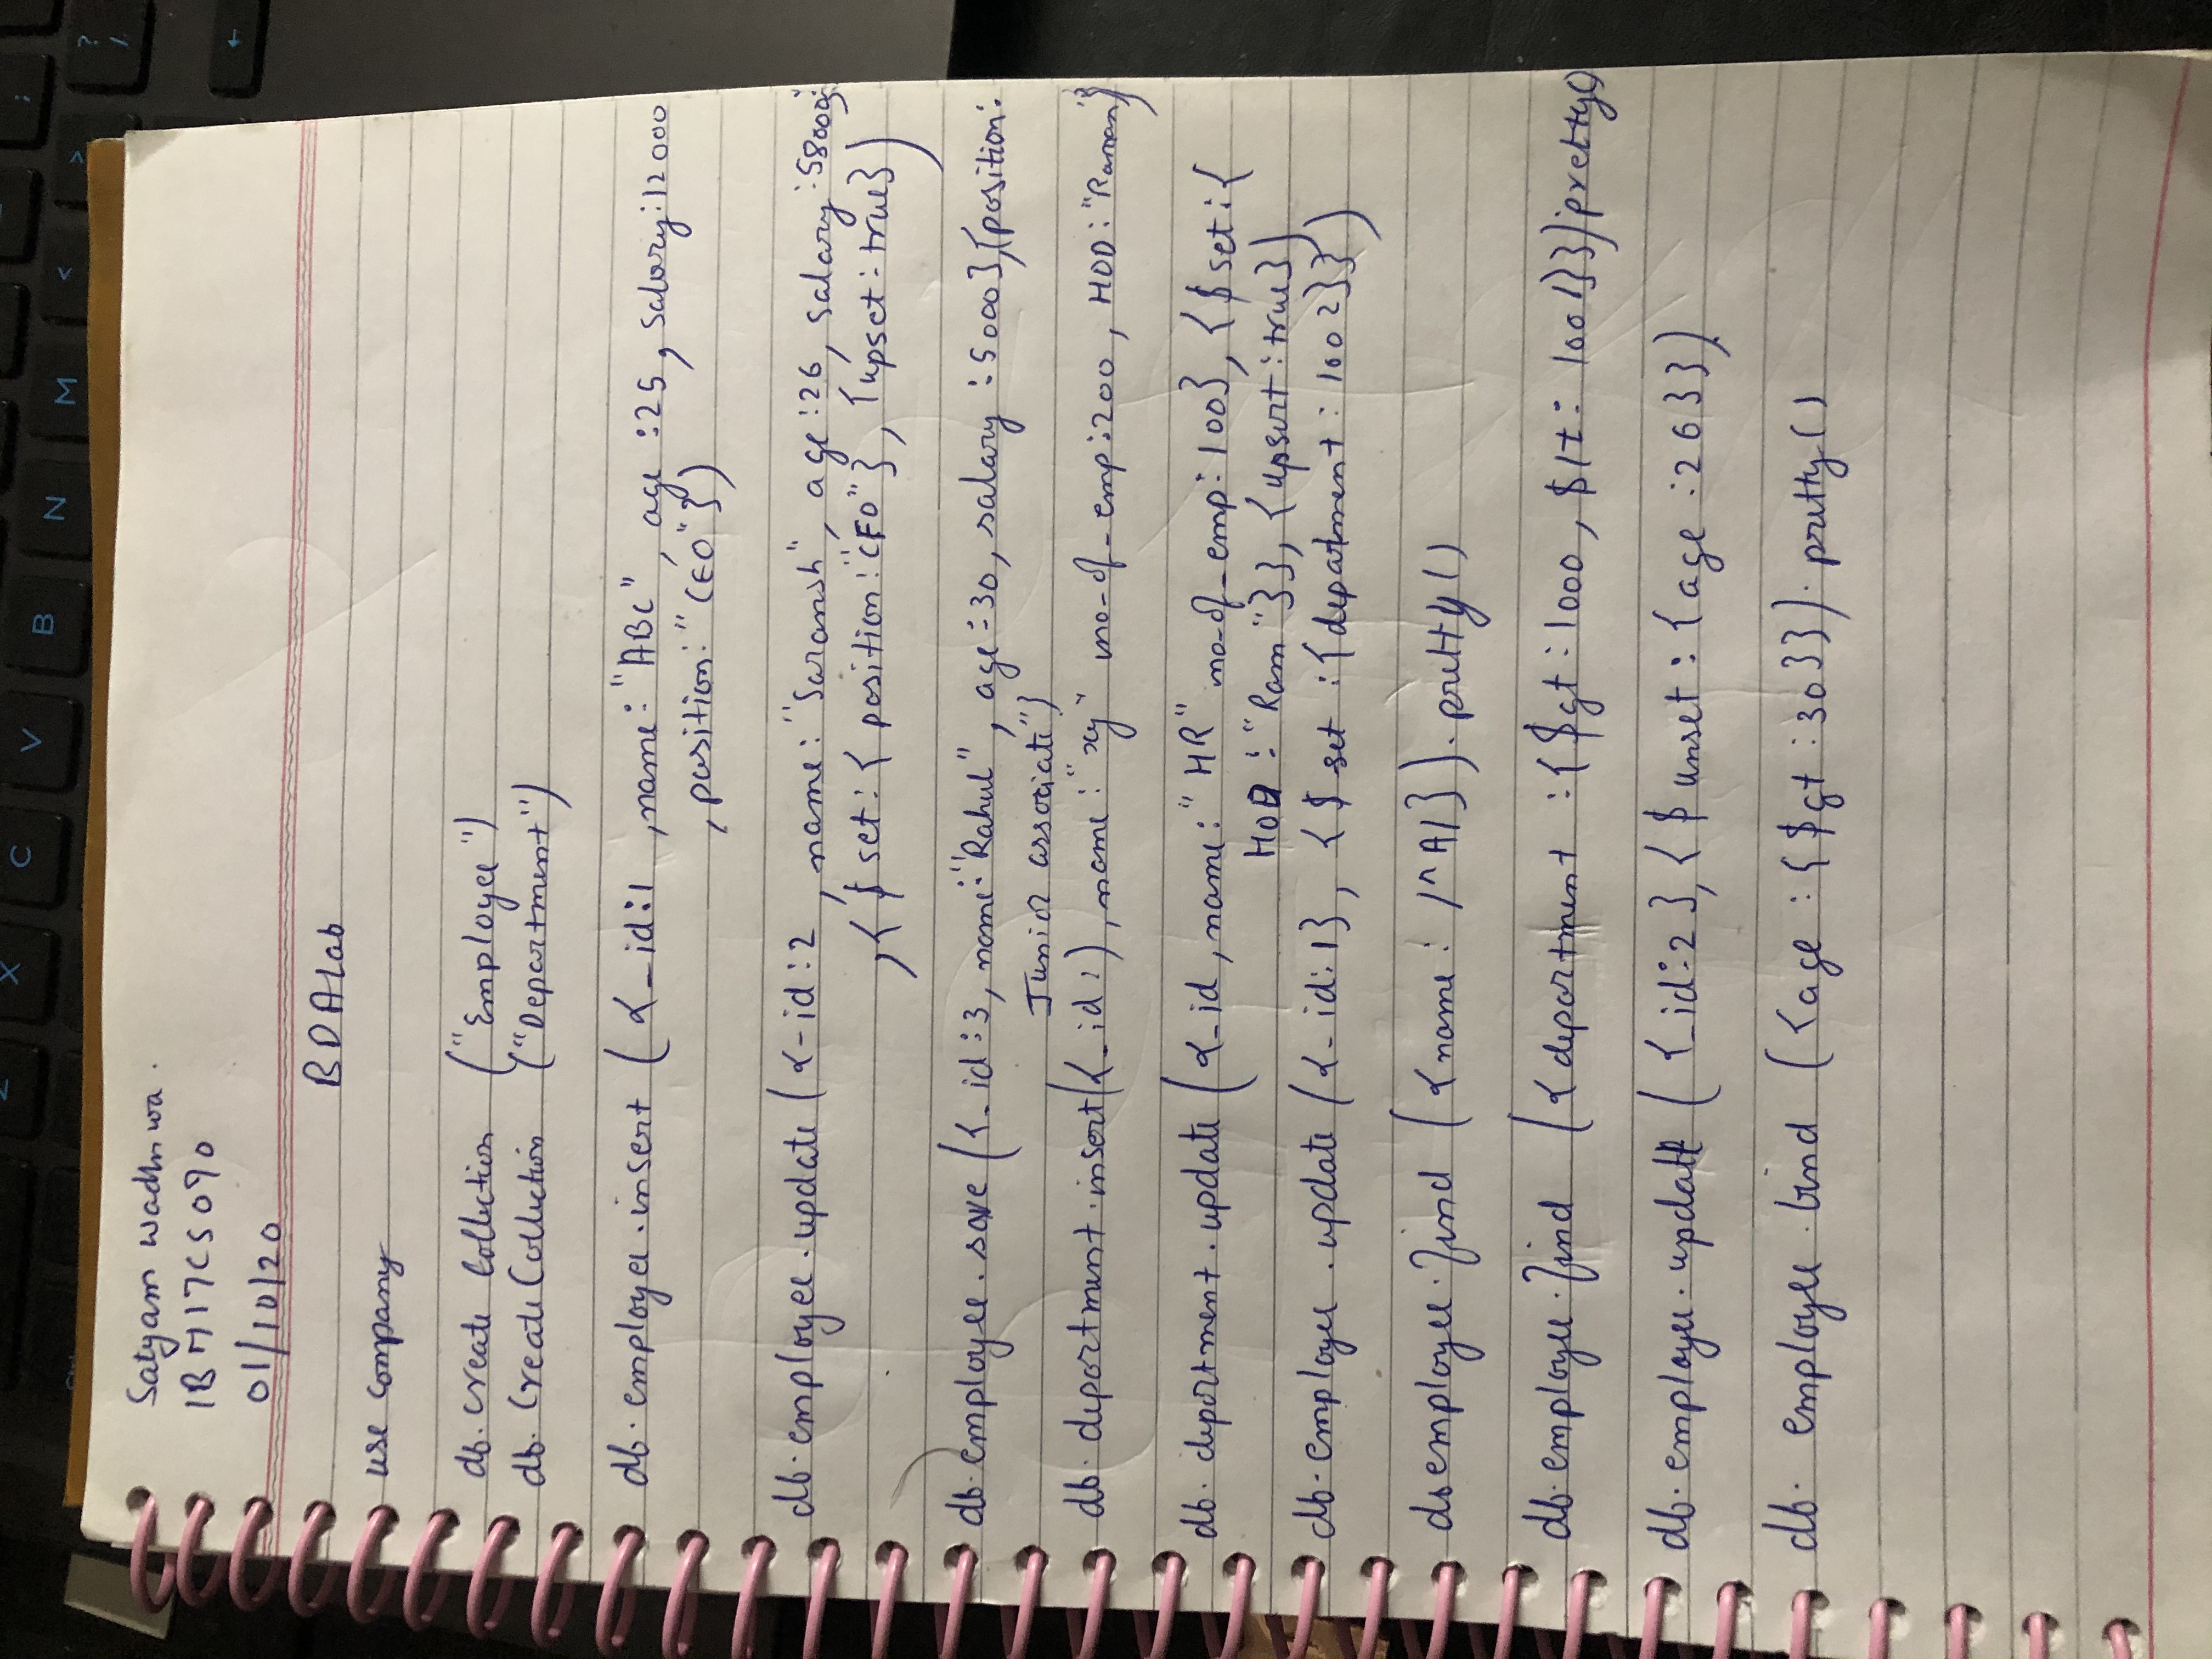 Z X C V B N M < > ? / ;
Satyam Wadhwa.
1BM17CS090
01/10/20
BDA Lab
use company
db. create Collection ("Employee")
db. Create Collection ("Department")
db. employee.insert ({_id:1 ,name: "ABC", age :25, Salary:12000
, position: "CEO"})
db.employee.update ({_id:2, name: "Saransh", age:26, salary:58000}
,{$ set: { position: "CFO"}, {upset: true})
db.employee.save ({_id:3, name:"Rahul", age:30, salary :5000},{position:
Junior associate")
db. department.insert({_id:), name: "xy" no-of_emp:200, HOD: "Raman"})
db. department.update ({_id, name: "HR" no-of_emp: 100}, {$ set: {
HOD : "Ram"}}, {upsert: true})
db.employee.update ({_id:1}, {$ set :{department: 1002}})
db employee.find ({name: /^A/}).pretty()
db.employee.find ({department :{$gt:1000, $lt: 1001}}).pretty()
db.employee.update ({_id:2},{$ unset: {age :26}})
db. employee.find ({age :{$gt :30}}). pretty()